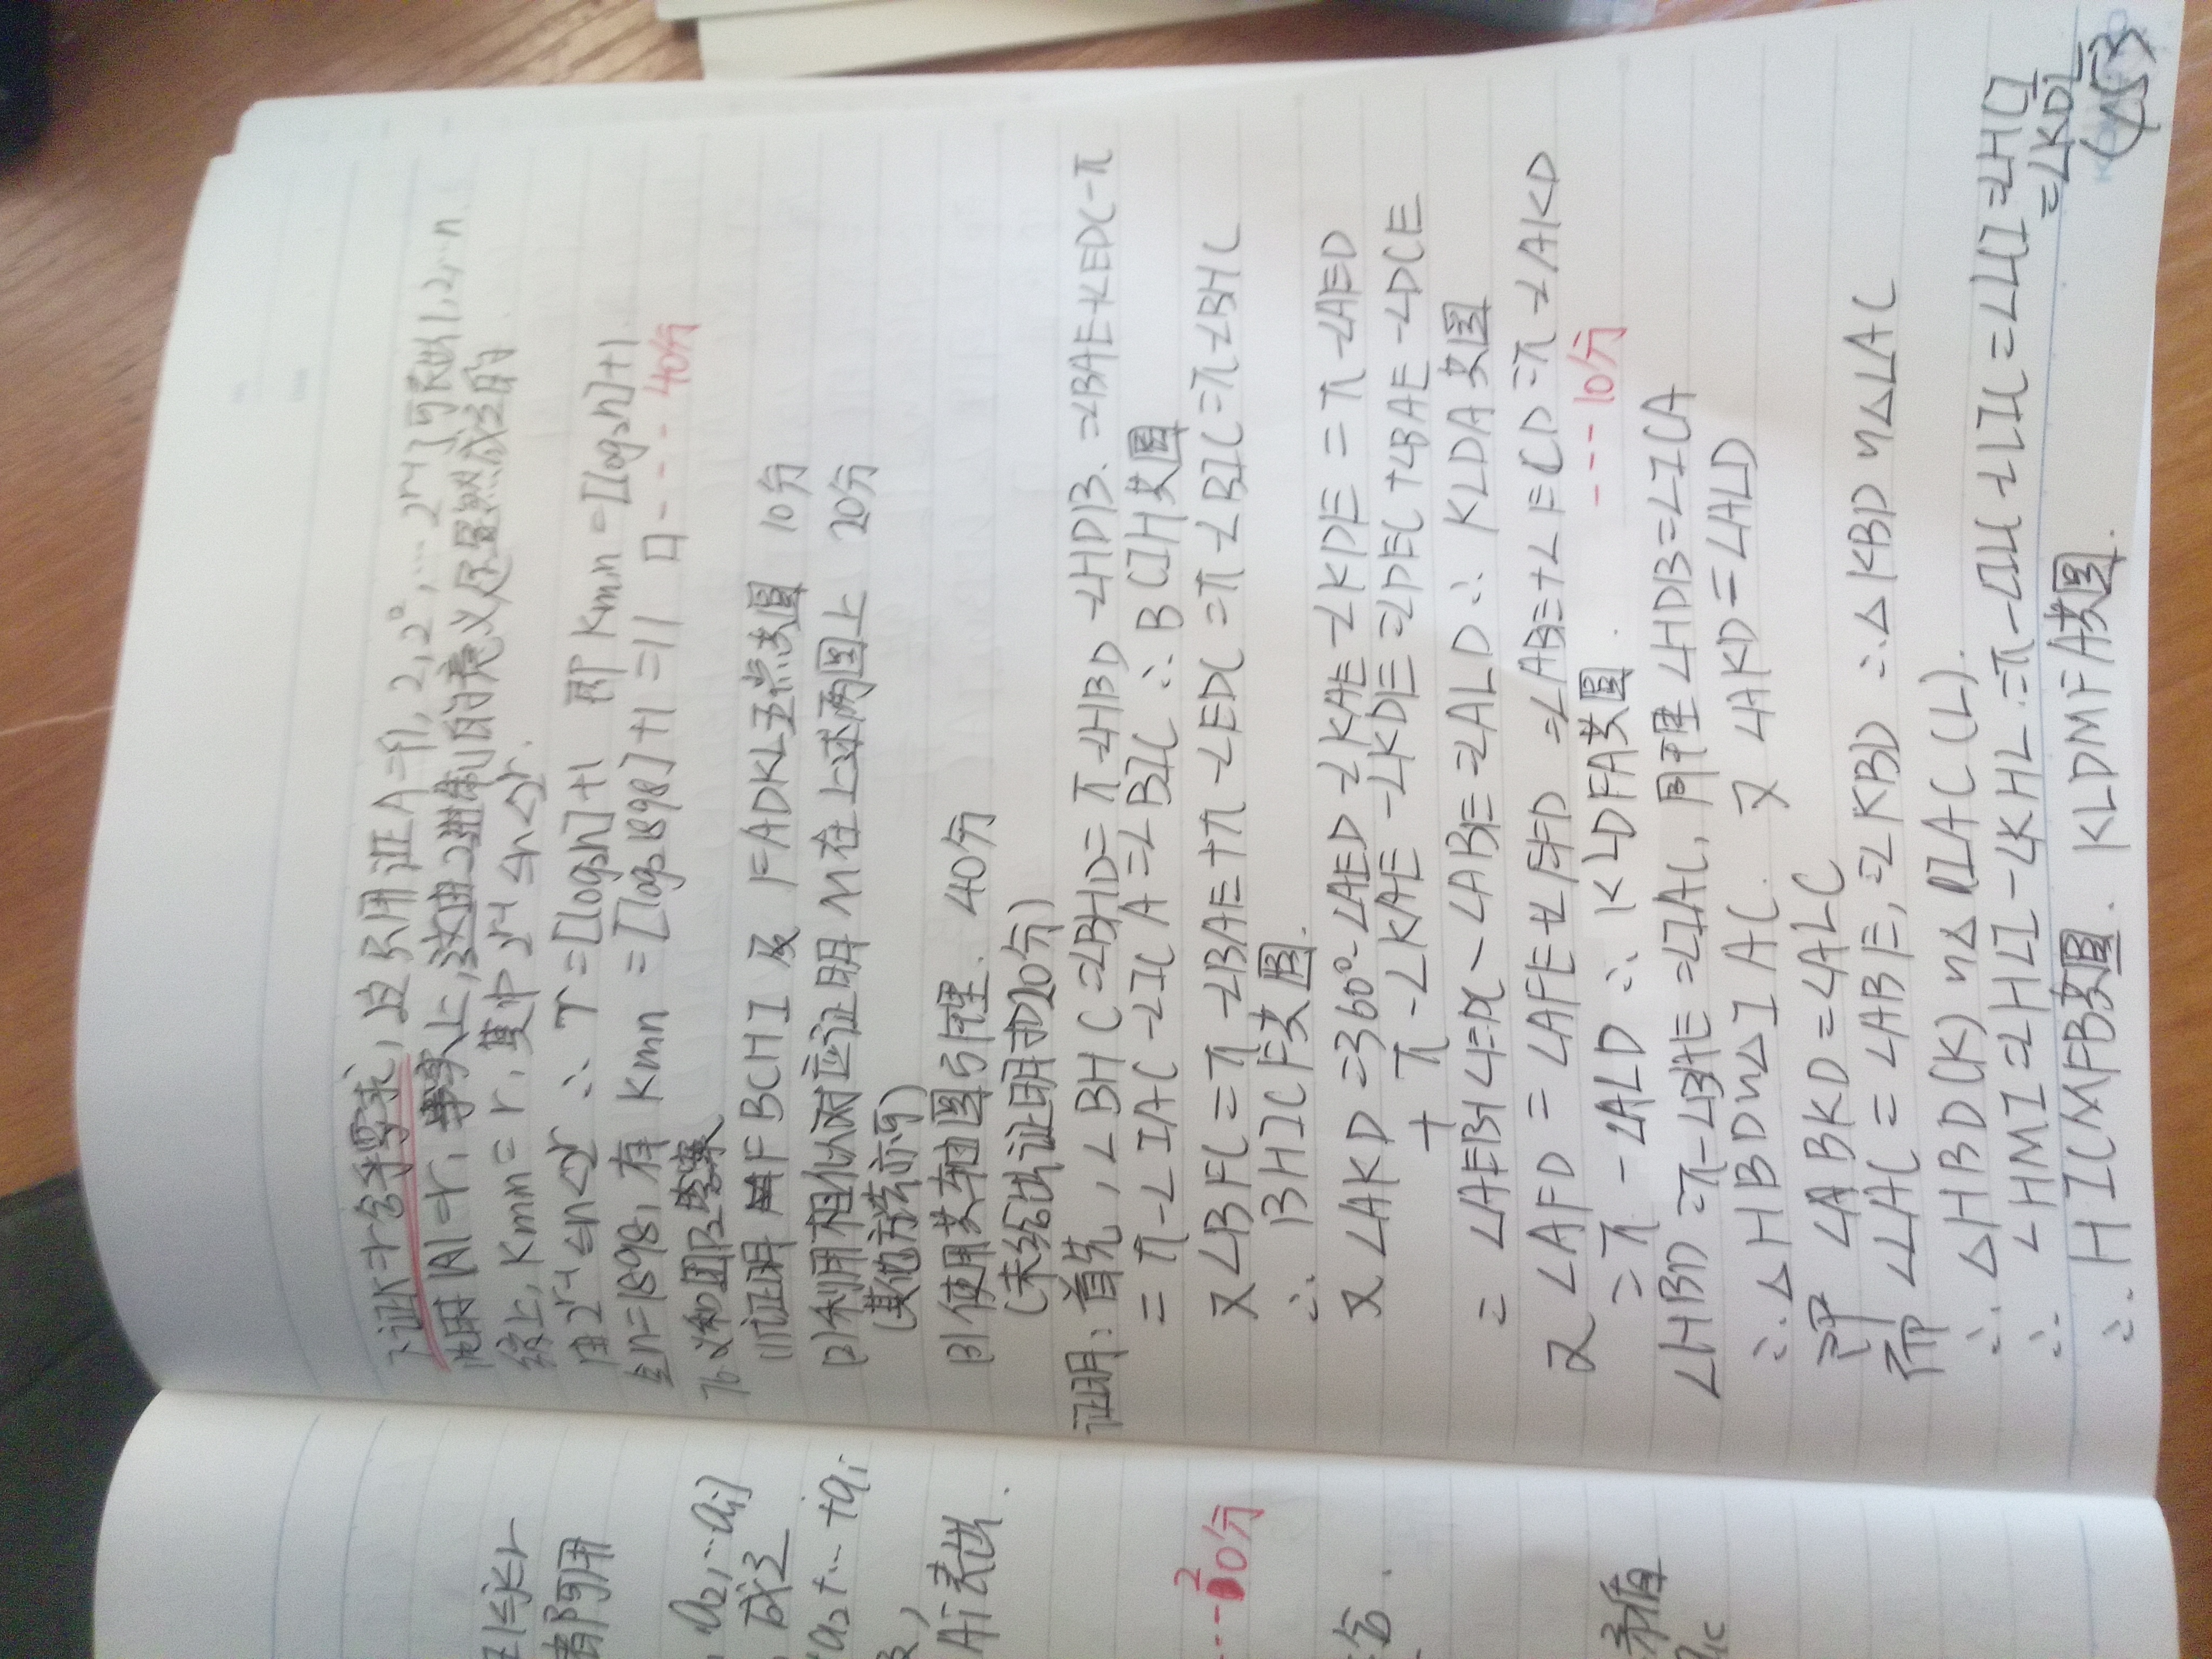 下证r=r合乎要求,这只用证A={1,2,2²,…2ʳ⁻¹}可表出1,2,…n
此时|A|=r,事实上,这由2进制的意义层显然成立的.
综上,Kmin=r,其中2ʳ⁻¹≤n<2ʳ.
由2ʳ⁻¹≤n<2ʳ ∴r=[log₂n]+1 即Kmin=[log₂n]+1.
当n=1898,有Kmin=[log₂1898]+1=11 □---40分
76.义和团P2答案
(1)证明FBCHI及FADKL五点共圆 10分
(2)利用相似对应证明M在上述两圆上 20分
(其他方法亦可)
(3)使用共轴圆引理. 40分
(未给出证明扣20分)
证明:首先,∠BHC=∠BHD=π-∠HBD-∠HDB.=∠BAE+∠EDC-π
=π-∠IAC-∠ICA=∠BIC ∴BCIH共圆
又∠BFC=π-∠BAE+π-∠EDC=π-∠BIC=π-∠BHC
∴BHICF共圆.
又∠AKD=360°-∠AED-∠KAE-∠KDE=π-∠AED
+π-∠KAE-∠KDE=∠DEC+∠BAE-∠DCE
=∠AEB+∠=π-∠ABE=∠ALD∴KLDA共圆
又∠AFD=∠AFE+∠EFD=∠ABE+∠ECD=π-∠AKD
=π-∠ALD∴KLDFA共圆. ---10分
∠HBD=π-∠BAE=∠IAC,同理∠HDB=∠ICA
∴△HBD∽△IAC.又∠AKD=∠ALD
即∠BKD=∠ALC
而∠LAC=∠ABE,=∠KBD∴△KBD∽△LAC
∴△HBD(K)∽△IAC(L).
∴∠HMI=∠HLI-∠KHL=π-∠LI-∠LIC=∠LCI=∠HCI
=∠KDL
∴HICMFB共圆.KLDMFA共圆.
(153)
都可用
a₂,…aᵢ}
成立
a₂+…+aᵢ
Aᵢ表出.
---20分
矛盾